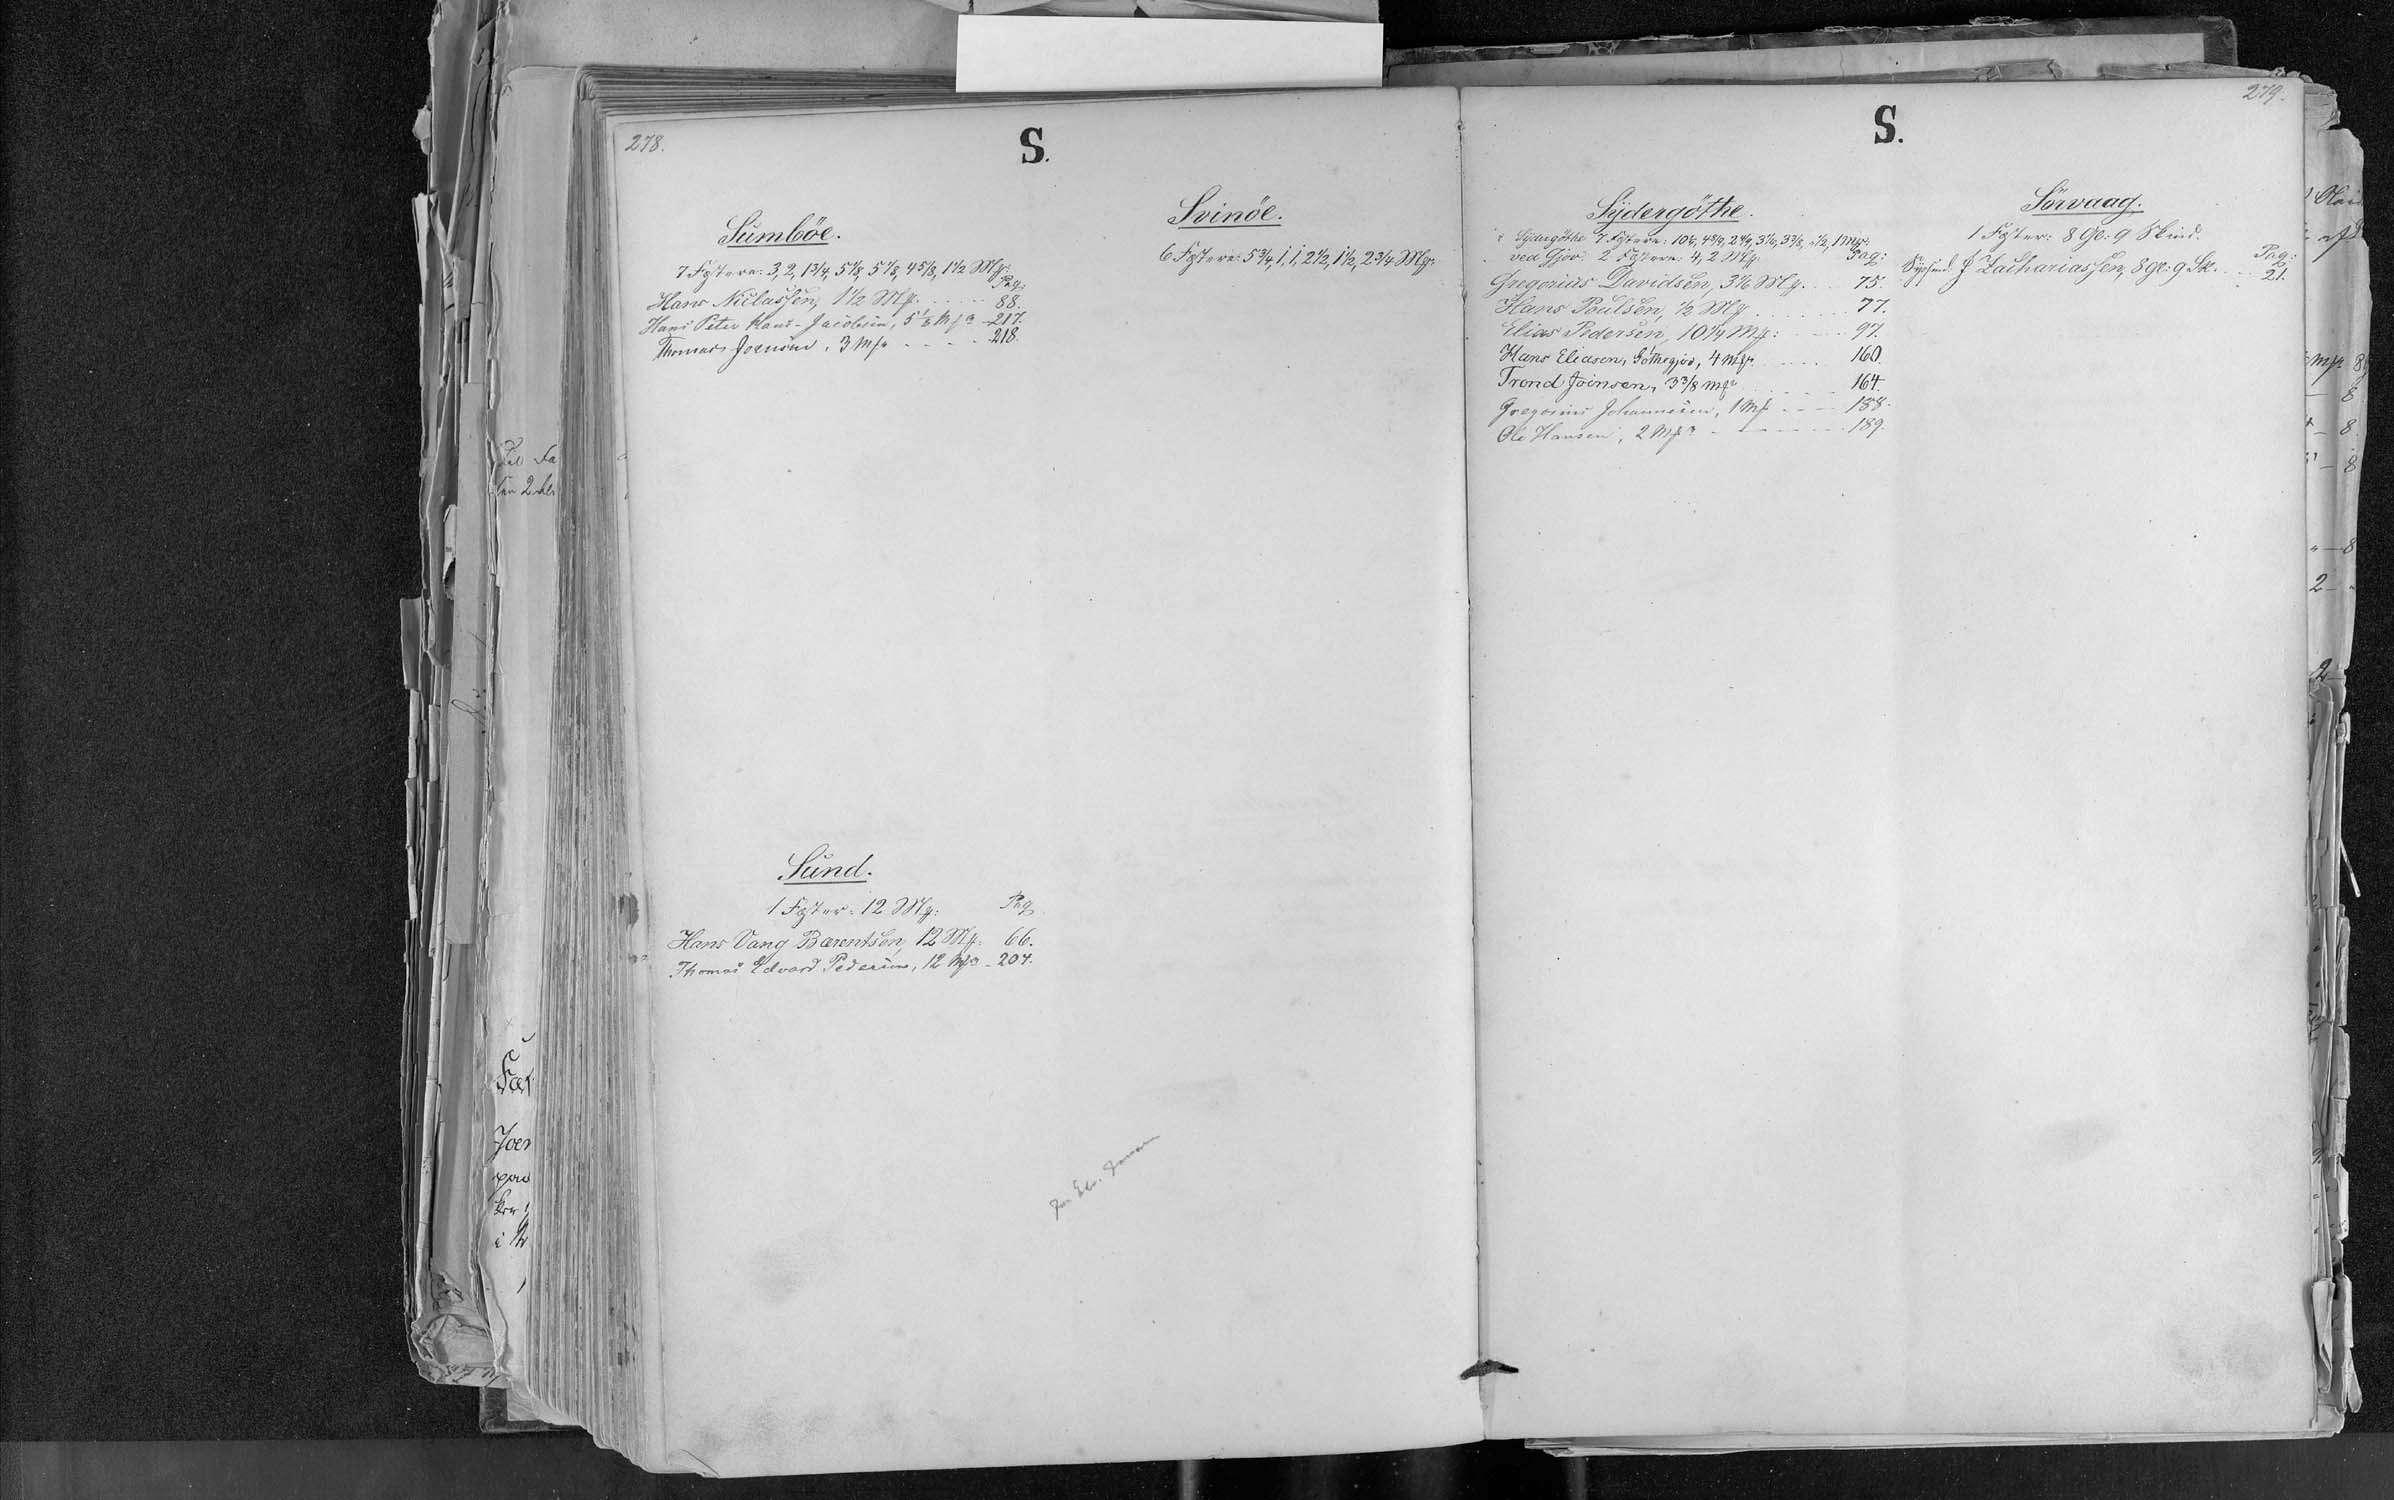 278.
S.
Sumböe.
7 Fæstere: 3, 2, 1 3/4, 5 1/8, 5 1/8, 4 5/8, 1 1/2 Mf:
Pag:
Hans Niclassen, 1 1/2 Mf. . . . . . 88.
Hans Peter Hans-Jacobsen, 5 1/8 Mf - 217.
Thomas Joensen, 3 Mf - - - - - 218.
Svinöe.
6 Fæstere: 5 3/4, 1, 1, 2 1/2, 1 1/2, 2 3/4 Mf:
Sund.
1 Fæster: 12 Mf:
Pag
Hans Vang Bærentsen, 12 Mf: 66.
Thomas Edvard Pedersen, 12 Mf - 204.
279.
S.
Sydergöthe.
Sydergöthe 7 Fæstere: 1 Mf:
ved Gjov. 2 Fæstere 4, 2 Mf:
Pag:
Gregorius Davidsen, Mf. . . . 75.
Hans Poulsen, 1/2 Mf . . . . . . 77.
Elias Pedersen, 10 1/4 Mf: . . . . 97.
Hans Eliasen, Göthegjov, 4 Mf. . . . . 160.
Trond Joensen, 3 3/8 Mf . . . . 164.
Gregorius Johannesen, 1 Mf - - - 188.
Ole Hansen, 2 Mf - - - - - - 189.
Sörvaag.
1 Fæster: 8 Gl: 9 Skind.
Pag:
J. Zachariassen, 8 Gl: 9 Sk. . . . 21.